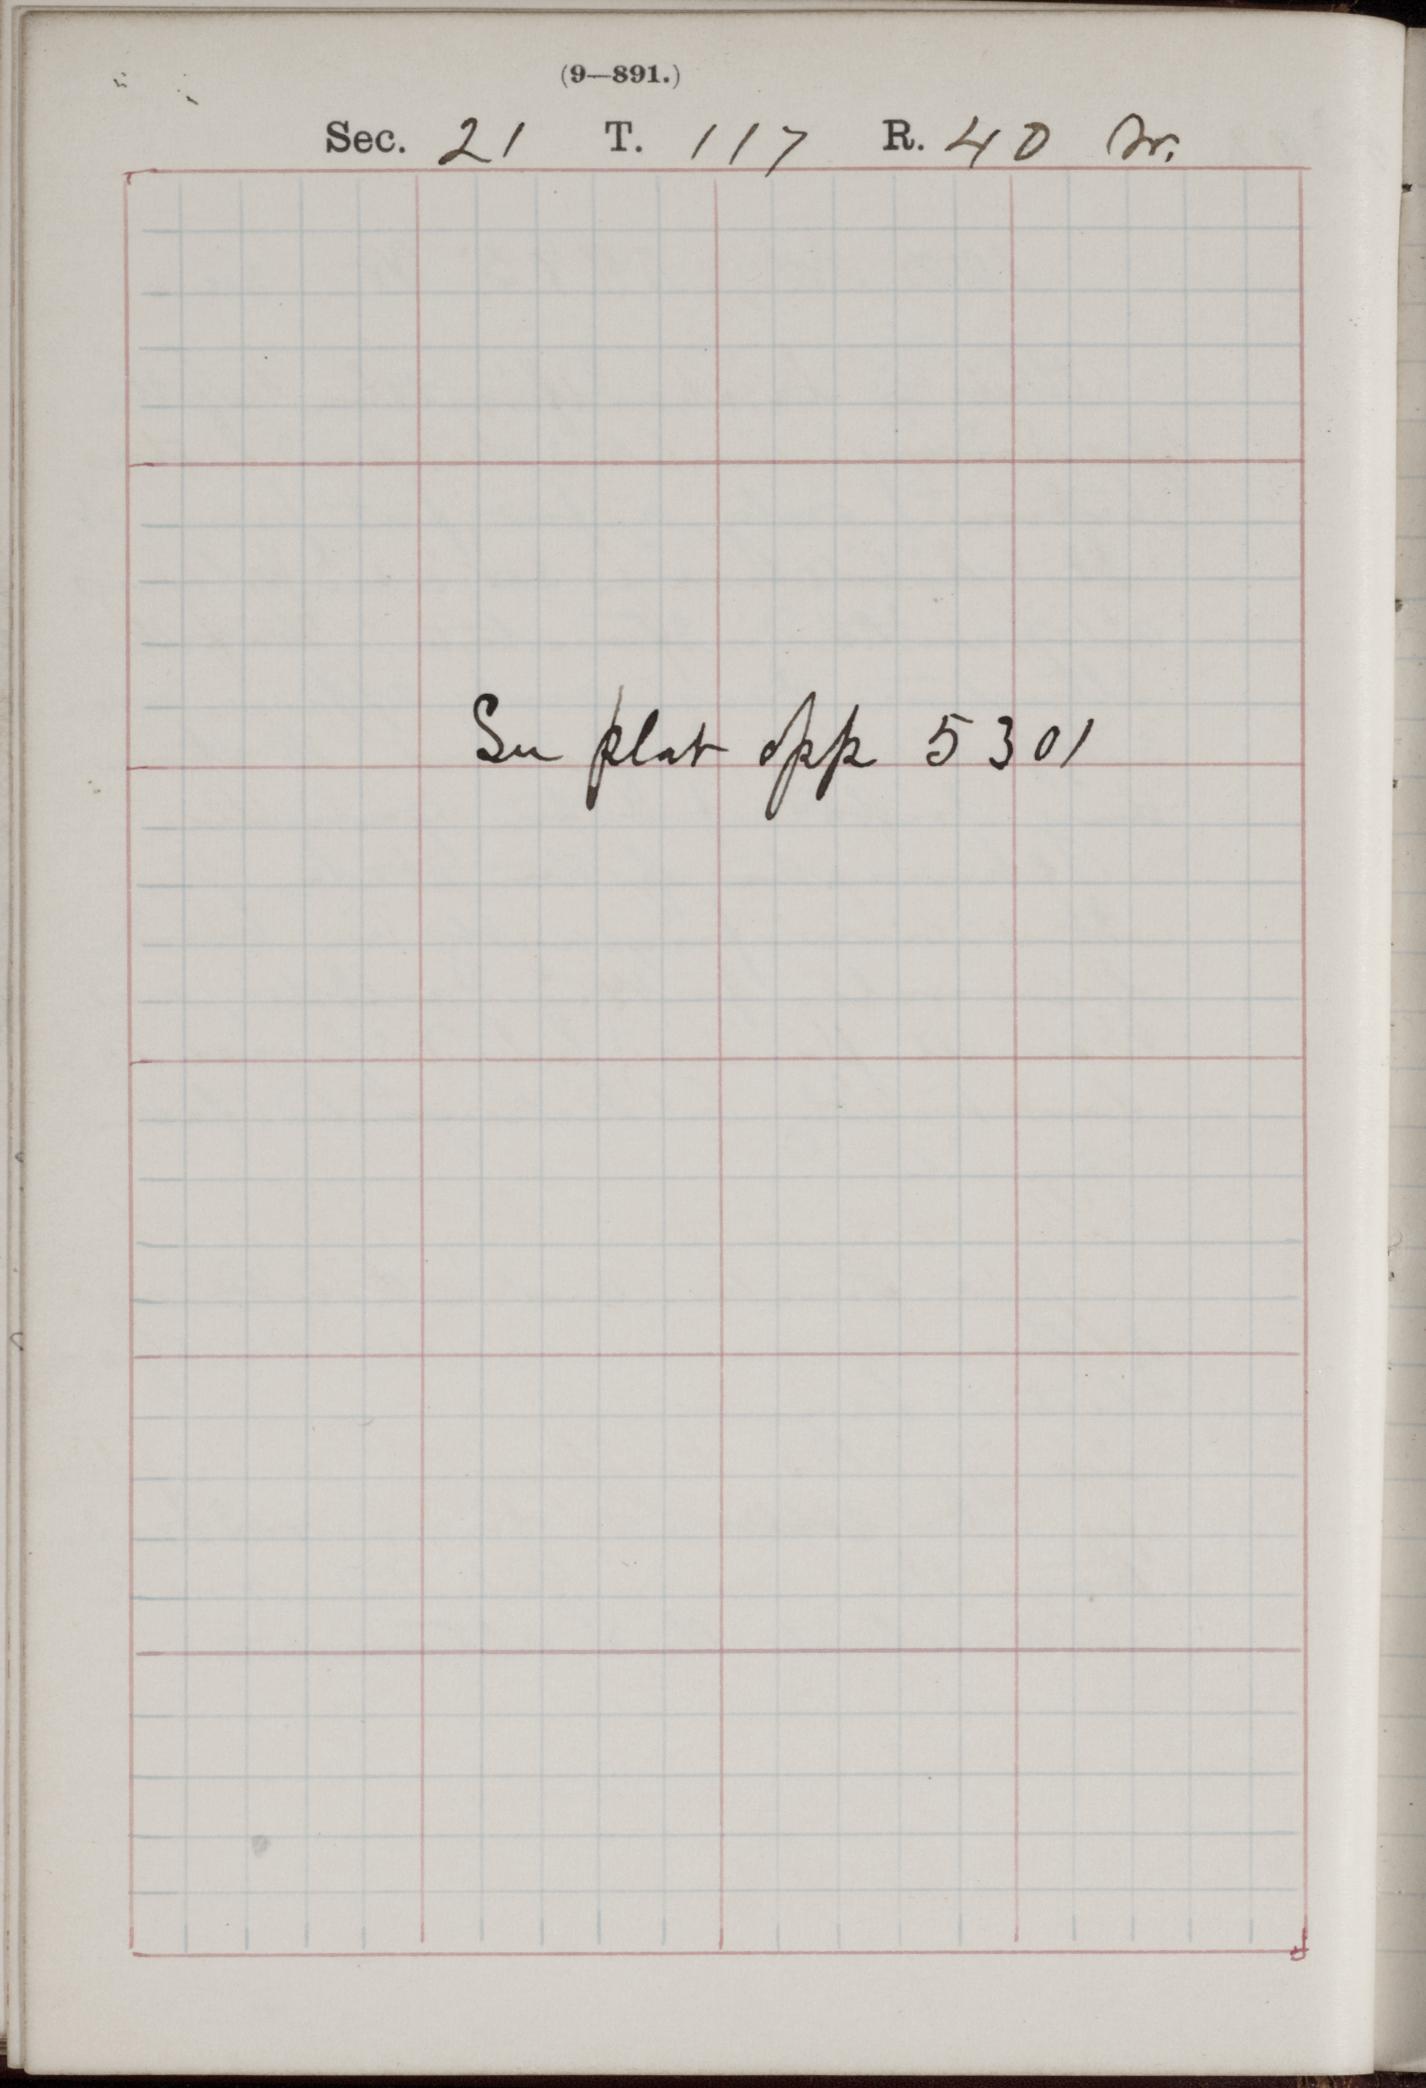 (9—891.)
Sec. 21 T. 117 R. 40 W.
See plat opp 5301